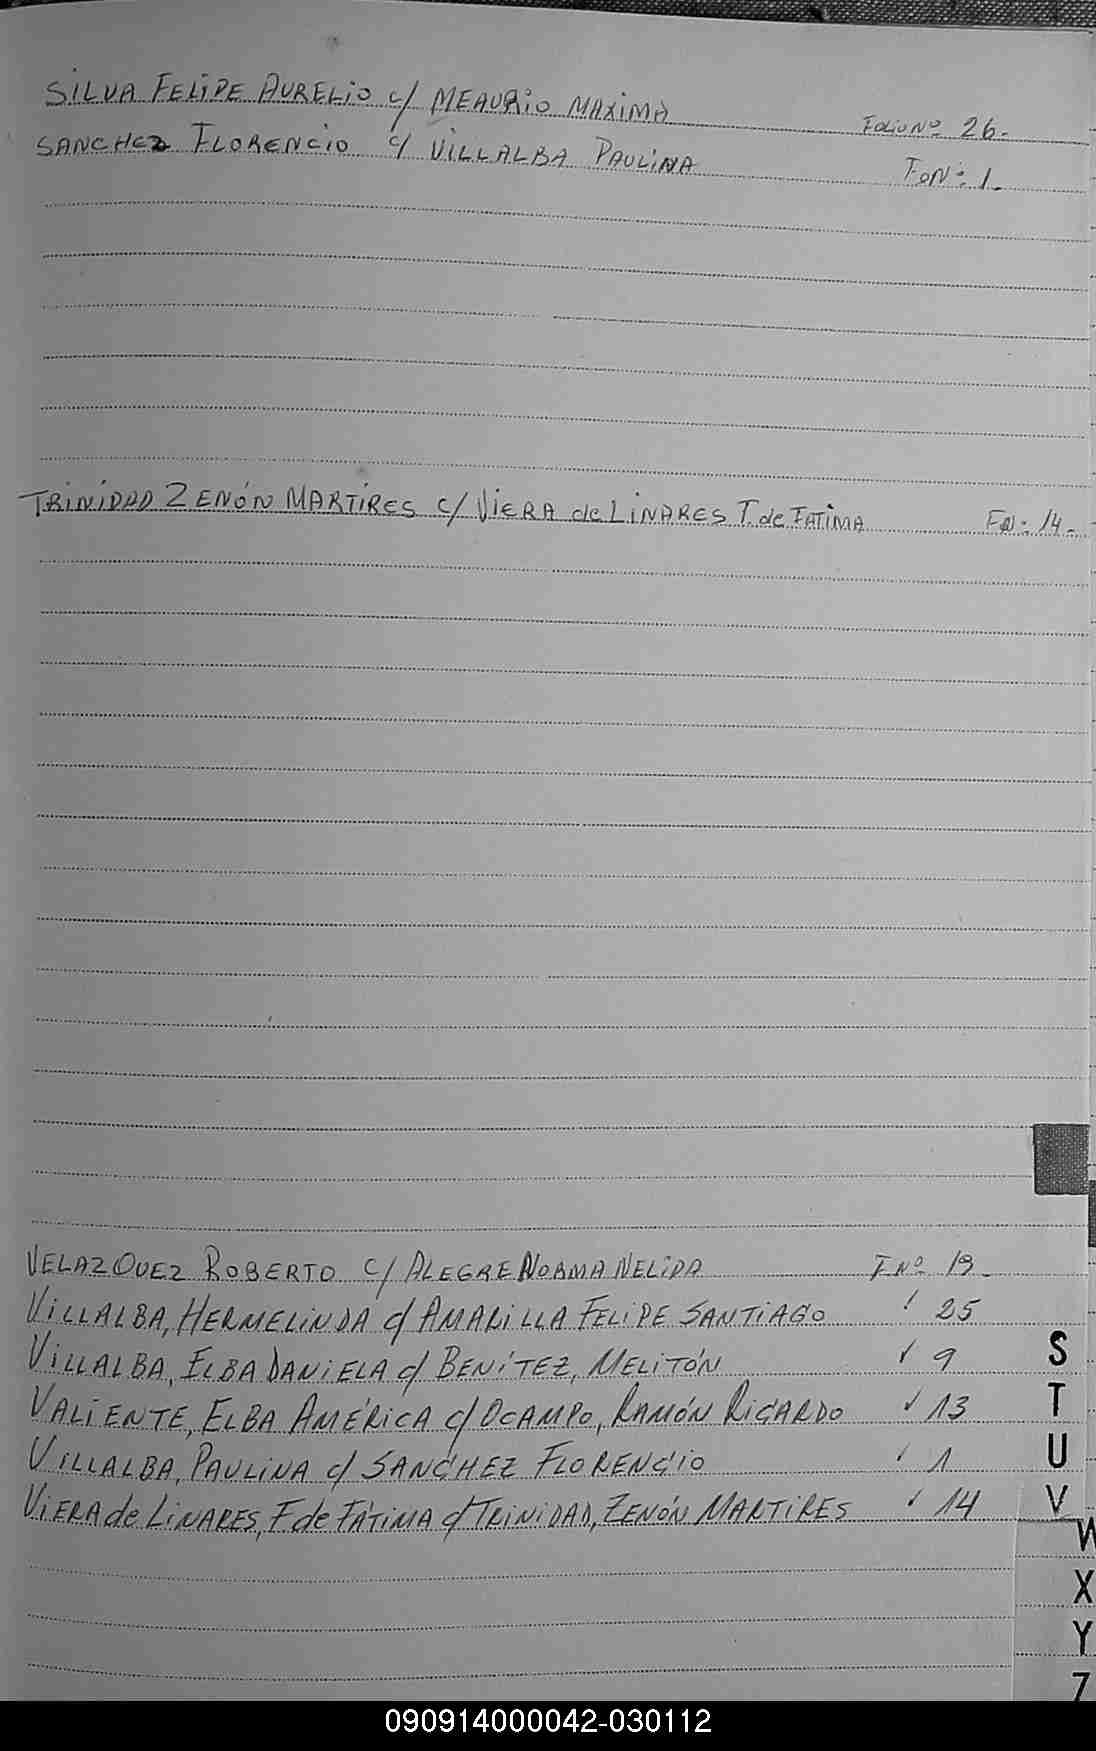 SILVA FELIPE AURELIO c/ MEAURIO MAXIMA Folio Nº 26.
SANCHEZ FLORENCIO c/ VILLALBA PAULINA Fo Nº 1.
TRINIDAD ZENÓN MARTIRES c/ VIERA de LINARES T. de FATIMA Fº: 14.
VELAZQUEZ ROBERTO c/ ALEGRE NORMA NELIDA F Nº 19.
VILLALBA, HERMELINDA c/ AMARILLA FELIPE SANTIAGO ' 25
VILLALBA, ELBA DANIELA c/ BENÍTEZ, MELITÓN ✓ 9
VALIENTE, ELBA AMÉRICA c/ OCAMPO, RAMÓN RICARDO ✓ 13
VILLALBA, PAULINA c/ SANCHEZ FLORENCIO ' 1
VIERA de LINARES, F de FÁTIMA c/ TRINIDAD, ZENÓN MARTIRES ✓ 14
S
T
U
V
W
X
Y
Z
090914000042-030112